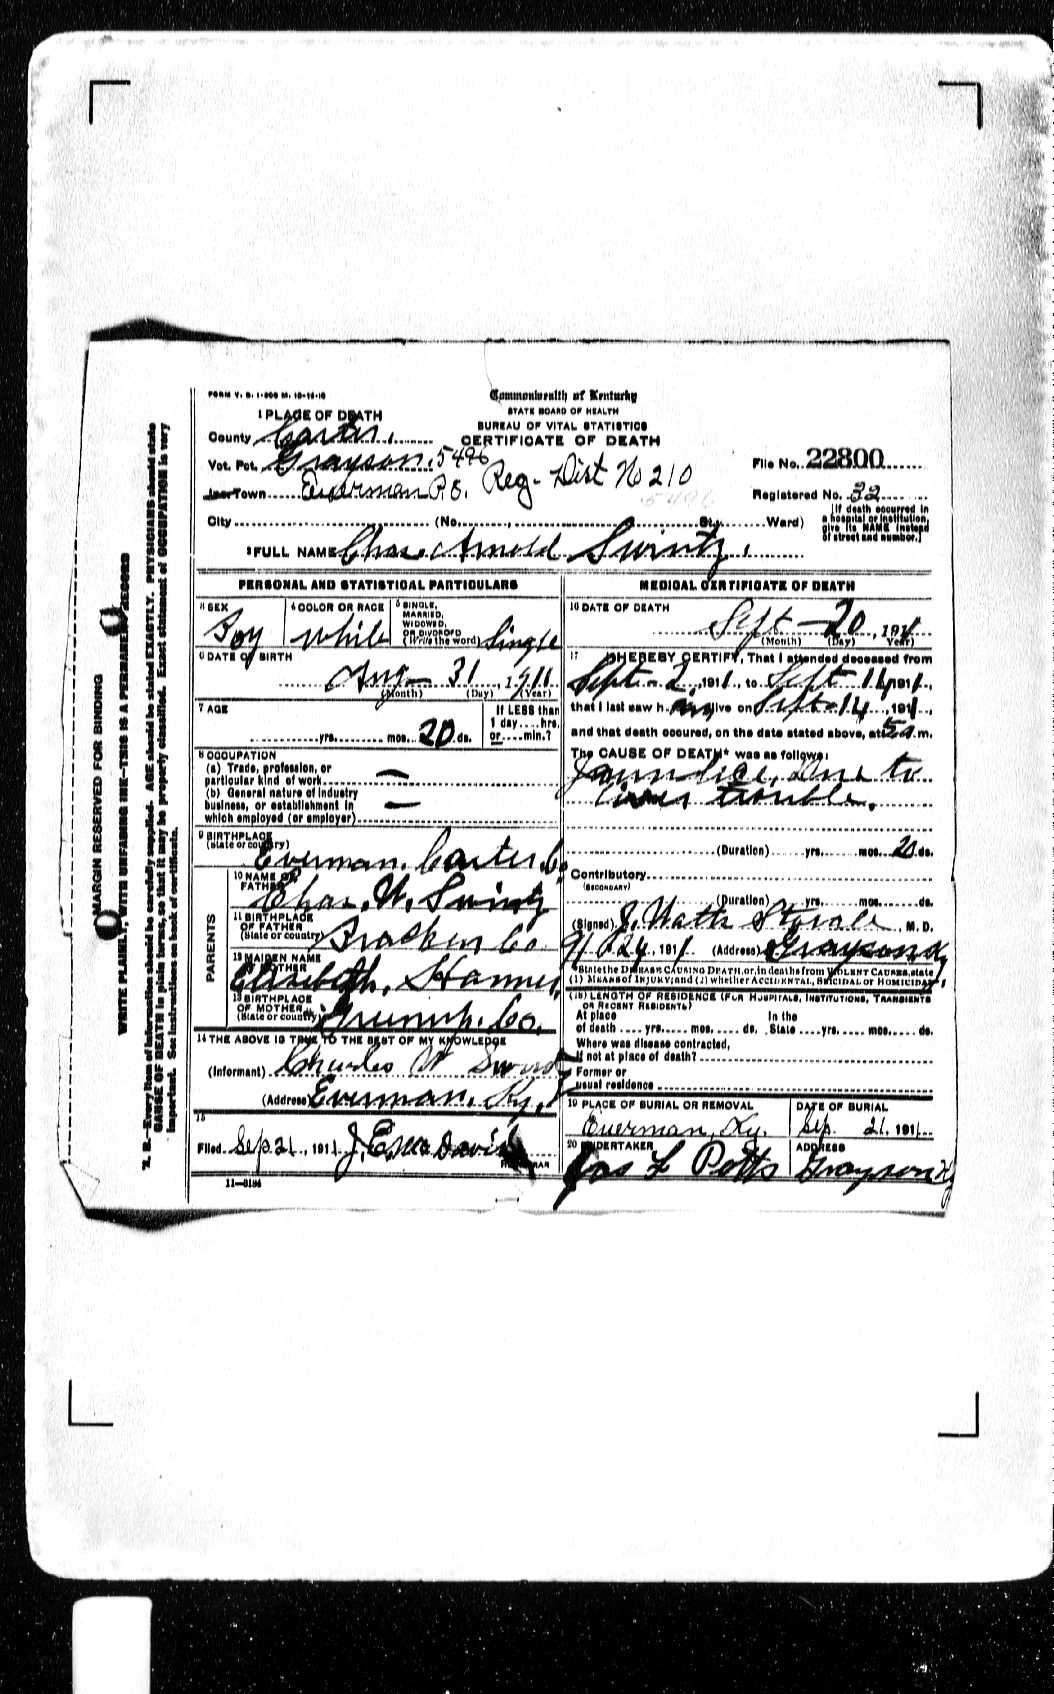 FORM V. S. 1-500 M. 10-15-10
Commonwealth of Kentucky
STATE BOARD OF HEALTH
BUREAU OF VITAL STATISTICS
CERTIFICATE OF DEATH
1 PLACE OF DEATH
County Carter.
Vot. Pct. Grayson. 5496
Inc. Town Everman P.O. Reg. Dist No 210
5496
City (No. , St., Ward)
File No. 22800
Registered No. 32
[If death occurred in a hospital or institution, give its NAME instead of street and number.]
2 FULL NAME Chas. Arnold Swintz.
PERSONAL AND STATISTICAL PARTICULARS
3 SEX Boy
4 COLOR OR RACE White
5 SINGLE, MARRIED, WIDOWED, OR DIVORCED (Write the word) Single
6 DATE OF BIRTH
Aug — 31, 1911
(Month) (Day) (Year)
7 AGE
yrs. mos. 20 ds.
If LESS than 1 day....hrs. or....min.?
8 OCCUPATION
(a) Trade, profession, or particular kind of work —
(b) General nature of industry business, or establishment in which employed (or employer) —
9 BIRTHPLACE (State or country) Everman. Carter Co.
PARENTS
10 NAME OF FATHER Chas. W. Swintz
11 BIRTHPLACE OF FATHER (State or country) Bracken Co
12 MAIDEN NAME OF MOTHER Elizabeth,
13 BIRTHPLACE OF MOTHER (State or country) Co.
14 THE ABOVE IS TRUE TO THE BEST OF MY KNOWLEDGE
(Informant) Charles W Swintz
(Address) Everman, Ky.
15
Filed Sep 21, 1911 J. E. McDavid
REGISTRAR
11—3184
MEDICAL CERTIFICATE OF DEATH
16 DATE OF DEATH
Sept — 20, 1911
(Month) (Day) (Year)
17 I HEREBY CERTIFY, That I attended deceased from
Sept - 2, 1911, to Sept 14 1911,
that I last saw him alive on Sept - 14, 1911,
and that death occured, on the date stated above, at 5 a.m.
The CAUSE OF DEATH* was as follows:
Jaundice, Due to
liver trouble.
(Duration) yrs. mos. 20 ds.
Contributory
(SECONDARY)
(Duration) yrs. mos. ds.
(Signed) J. Watts Stovall M. D.
9/24, 1911 (Address) Grayson Ky
*State the DISEASE CAUSING DEATH, or, in deaths from VIOLENT CAUSES, state (1) MEANS of INJURY; and (2) whether ACCIDENTAL, SUICIDAL or HOMICIDAL.
(18) LENGTH OF RESIDENCE (FOR HOSPITALS, INSTITUTIONS, TRANSIENTS OR RECENT RESIDENTS)
At place of death yrs. mos. ds. In the State yrs. mos. ds.
Where was disease contracted, If not at place of death?
Former or usual residence
19 PLACE OF BURIAL OR REMOVAL
Everman, Ky.
DATE OF BURIAL
Sep. 21, 1911
20 UNDERTAKER
Jas F Potts
ADDRESS
Grayson Ky
MARGIN RESERVED FOR BINDING
WRITE PLAINLY, WITH UNFADING INK—THIS IS A PERMANENT RECORD
N. B.—Every item of information should be carefully supplied. AGE should be stated EXACTLY. PHYSICIANS should state
CAUSE OF DEATH in plain terms, so that it may be properly classified. Exact statement of OCCUPATION is very
important. See instructions on back of certificate.